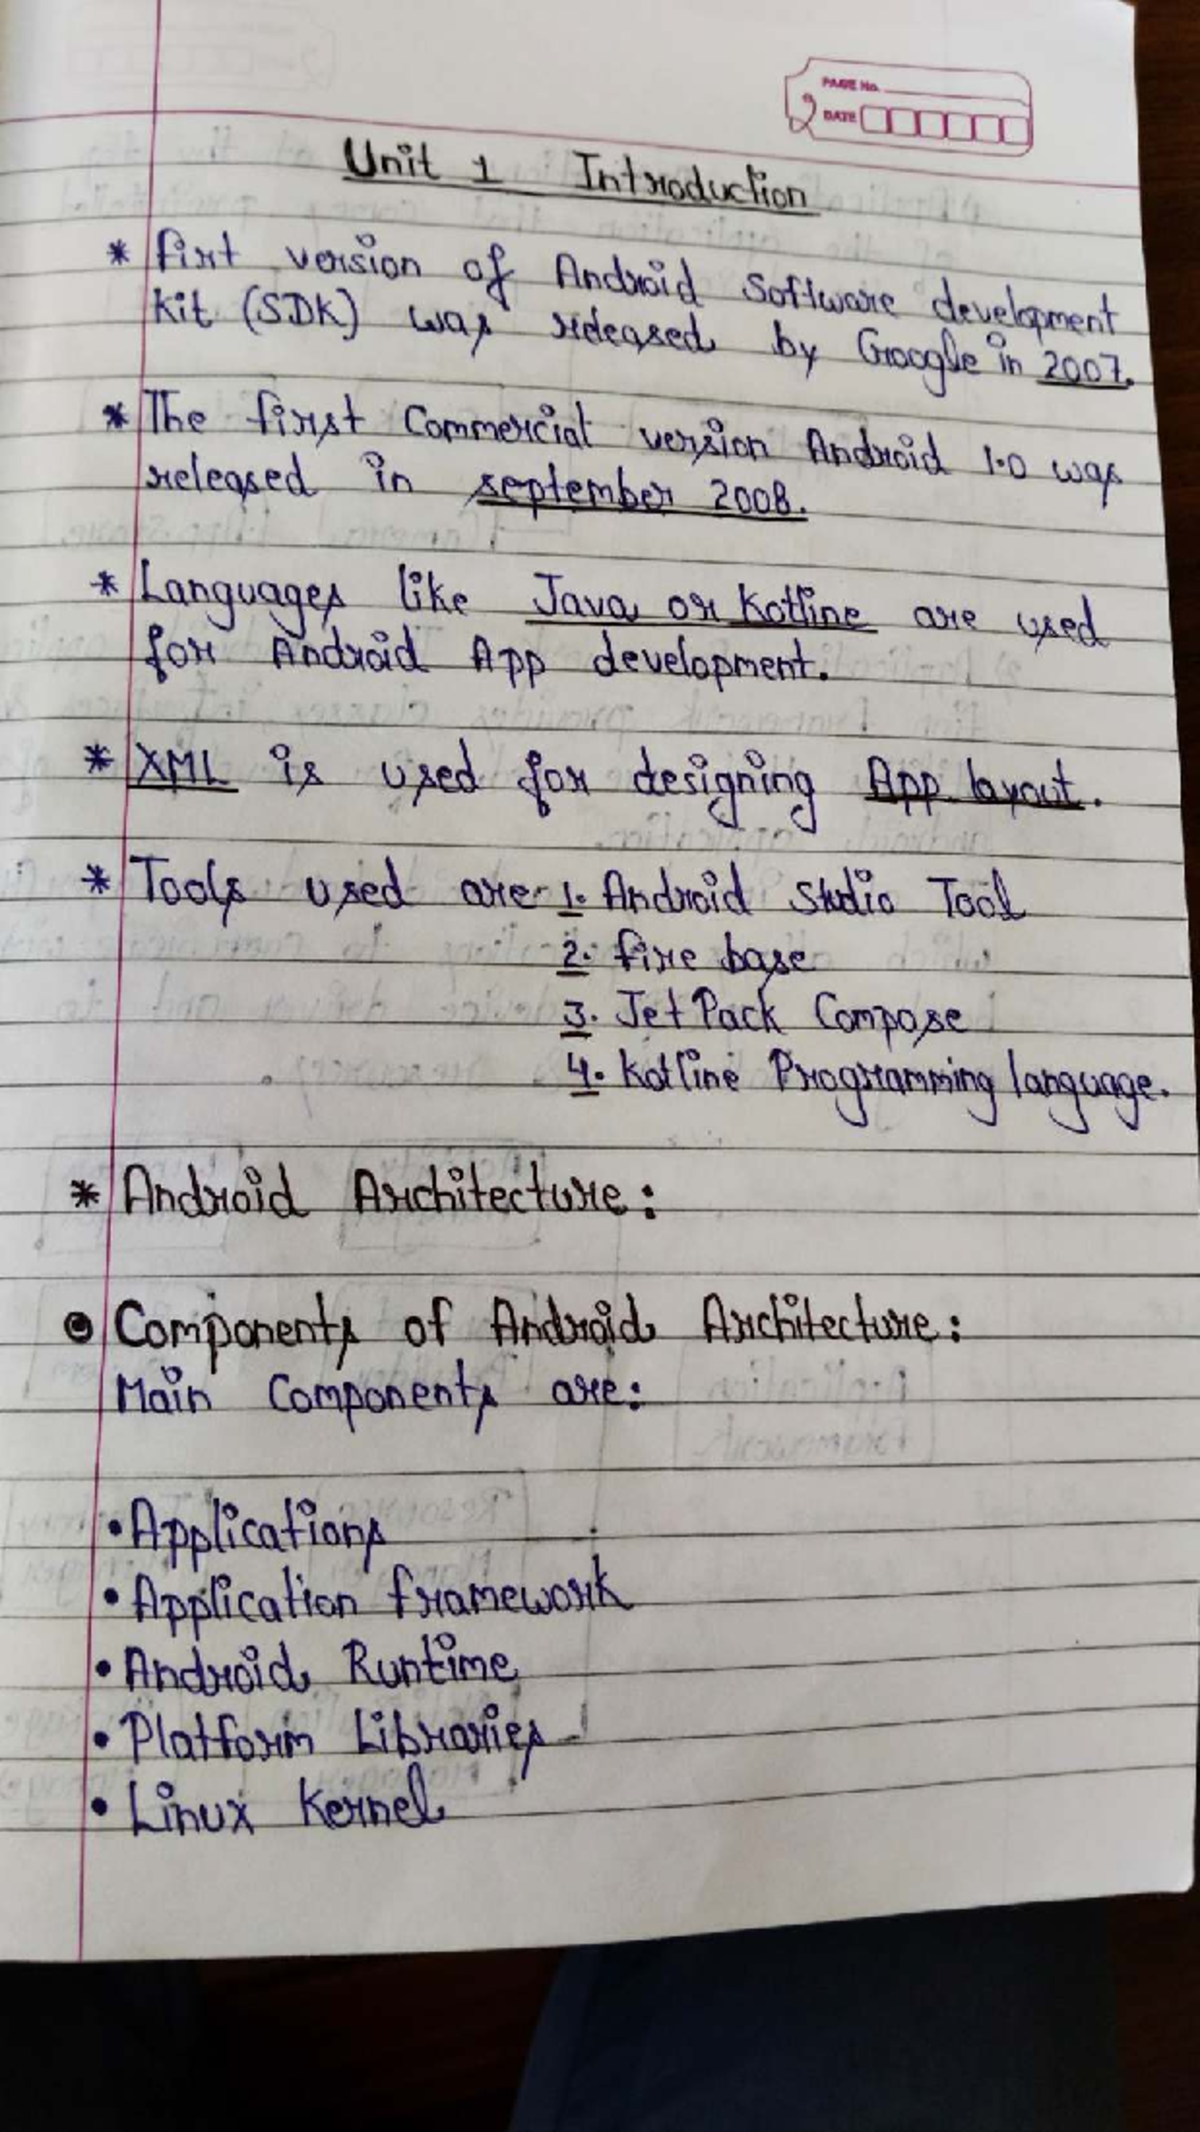 PAGE No.
DATE
Unit 1 Introduction
* first version of Android Software development
Kit (SDK) was released by Google in 2007.
* The first Commercial version Android 1.0 was
released in september 2008.
* Languages like Java or Kotline are used
for Android App development.
* XML is used for designing App layout.
* Tools used are- 1. Android Studio Tool
2. fire base
3. Jet Pack Compose
4. Kotline Programming language.
* Android Architecture:
Components of Android Architecture:
Main Components are:
• Applications
• Application framework
• Android Runtime
• Platform Libraries
• Linux Kernel